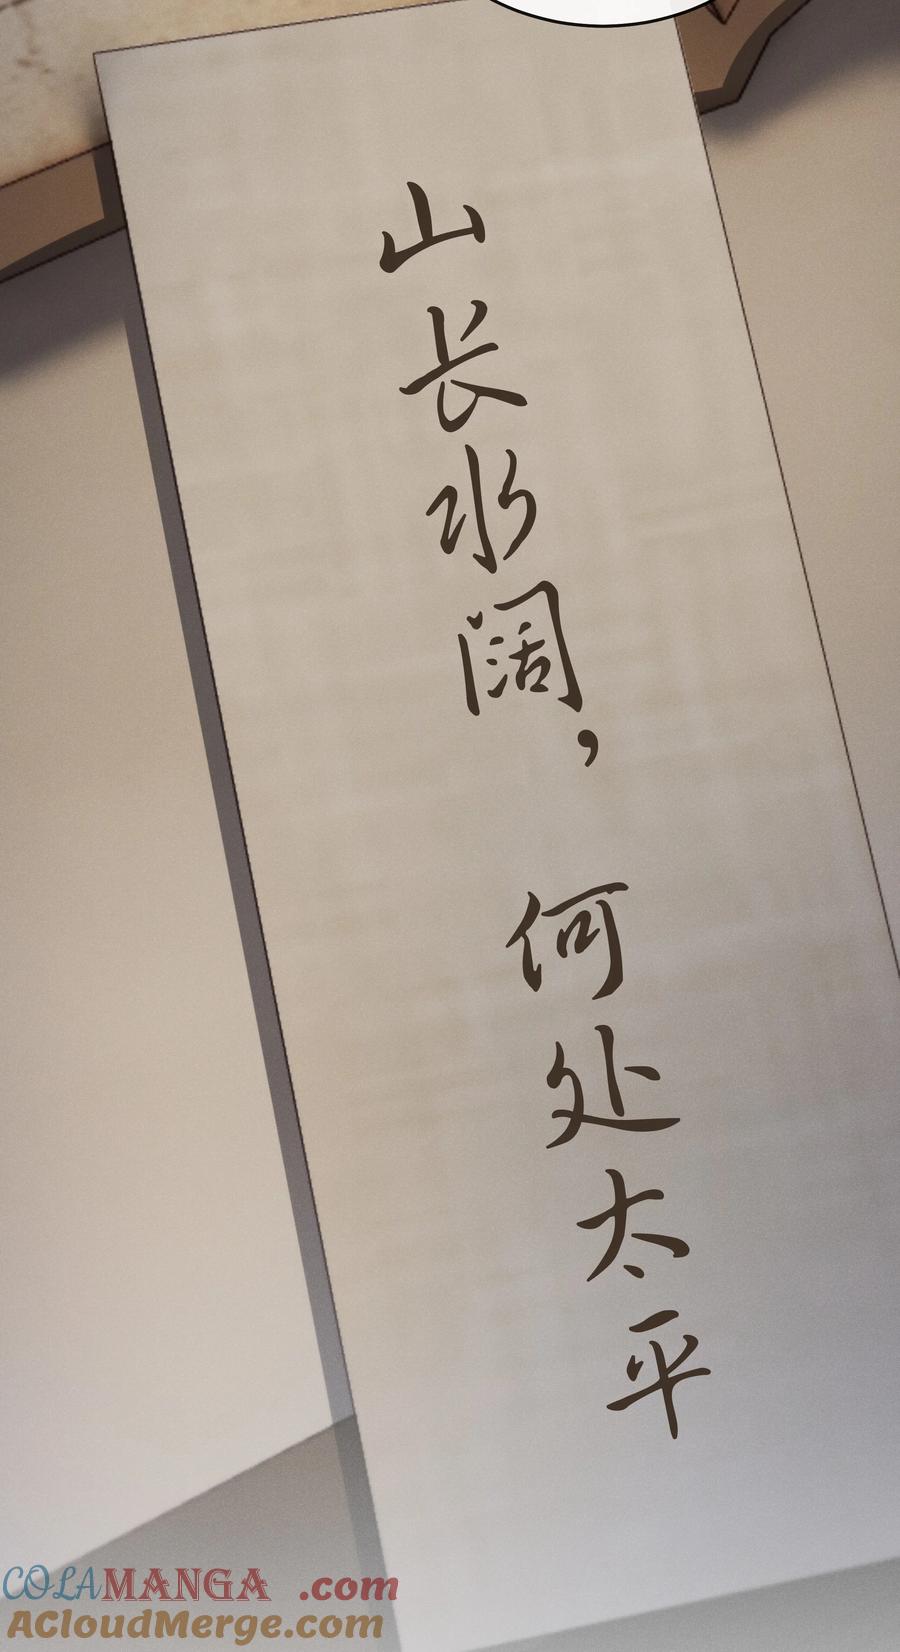 山长水阔，何处太平
COLAMANGA.com
ACloudMerge.com